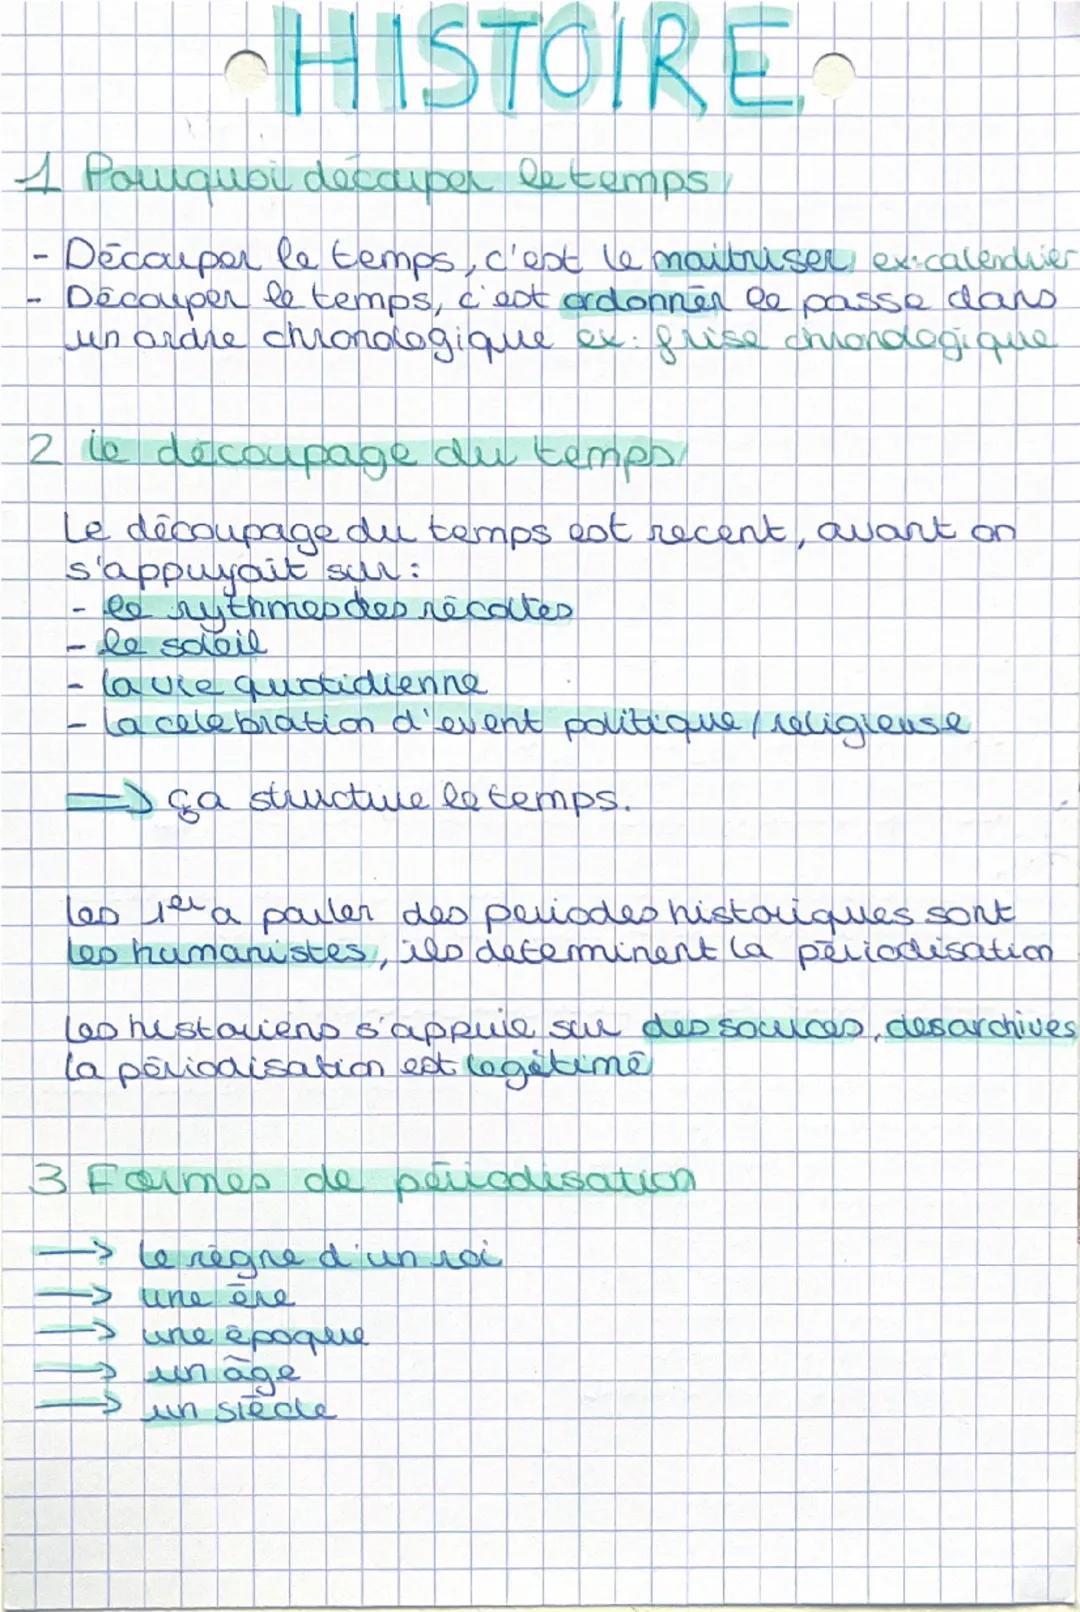 HISTOIRE
1 Pourquoi découper le temps
- Découper le temps, c'est le maitriser ex: calendrier
- Découper le temps, c'est ordonner le passe dans
un ordre chronologique ex: frise chronologique
2 le découpage du temps
Le découpage du temps est recent, avant on
s'appuyait sur :
- le rythmes des récoltes
- le soleil
- la vie quotidienne
- la celebration d'event politique / religieuse
⟹ ça structure le temps.
les 1er a parler des periodes historiques sont
les humanistes, ils determinent la périodisation
les historiens s'appuie sur des sources, des archives
la périodisation est legitimé
3 Formes de périodisation
→ le règne d'un roi
→ une ère
→ une époque
→ un âge
→ un siècle